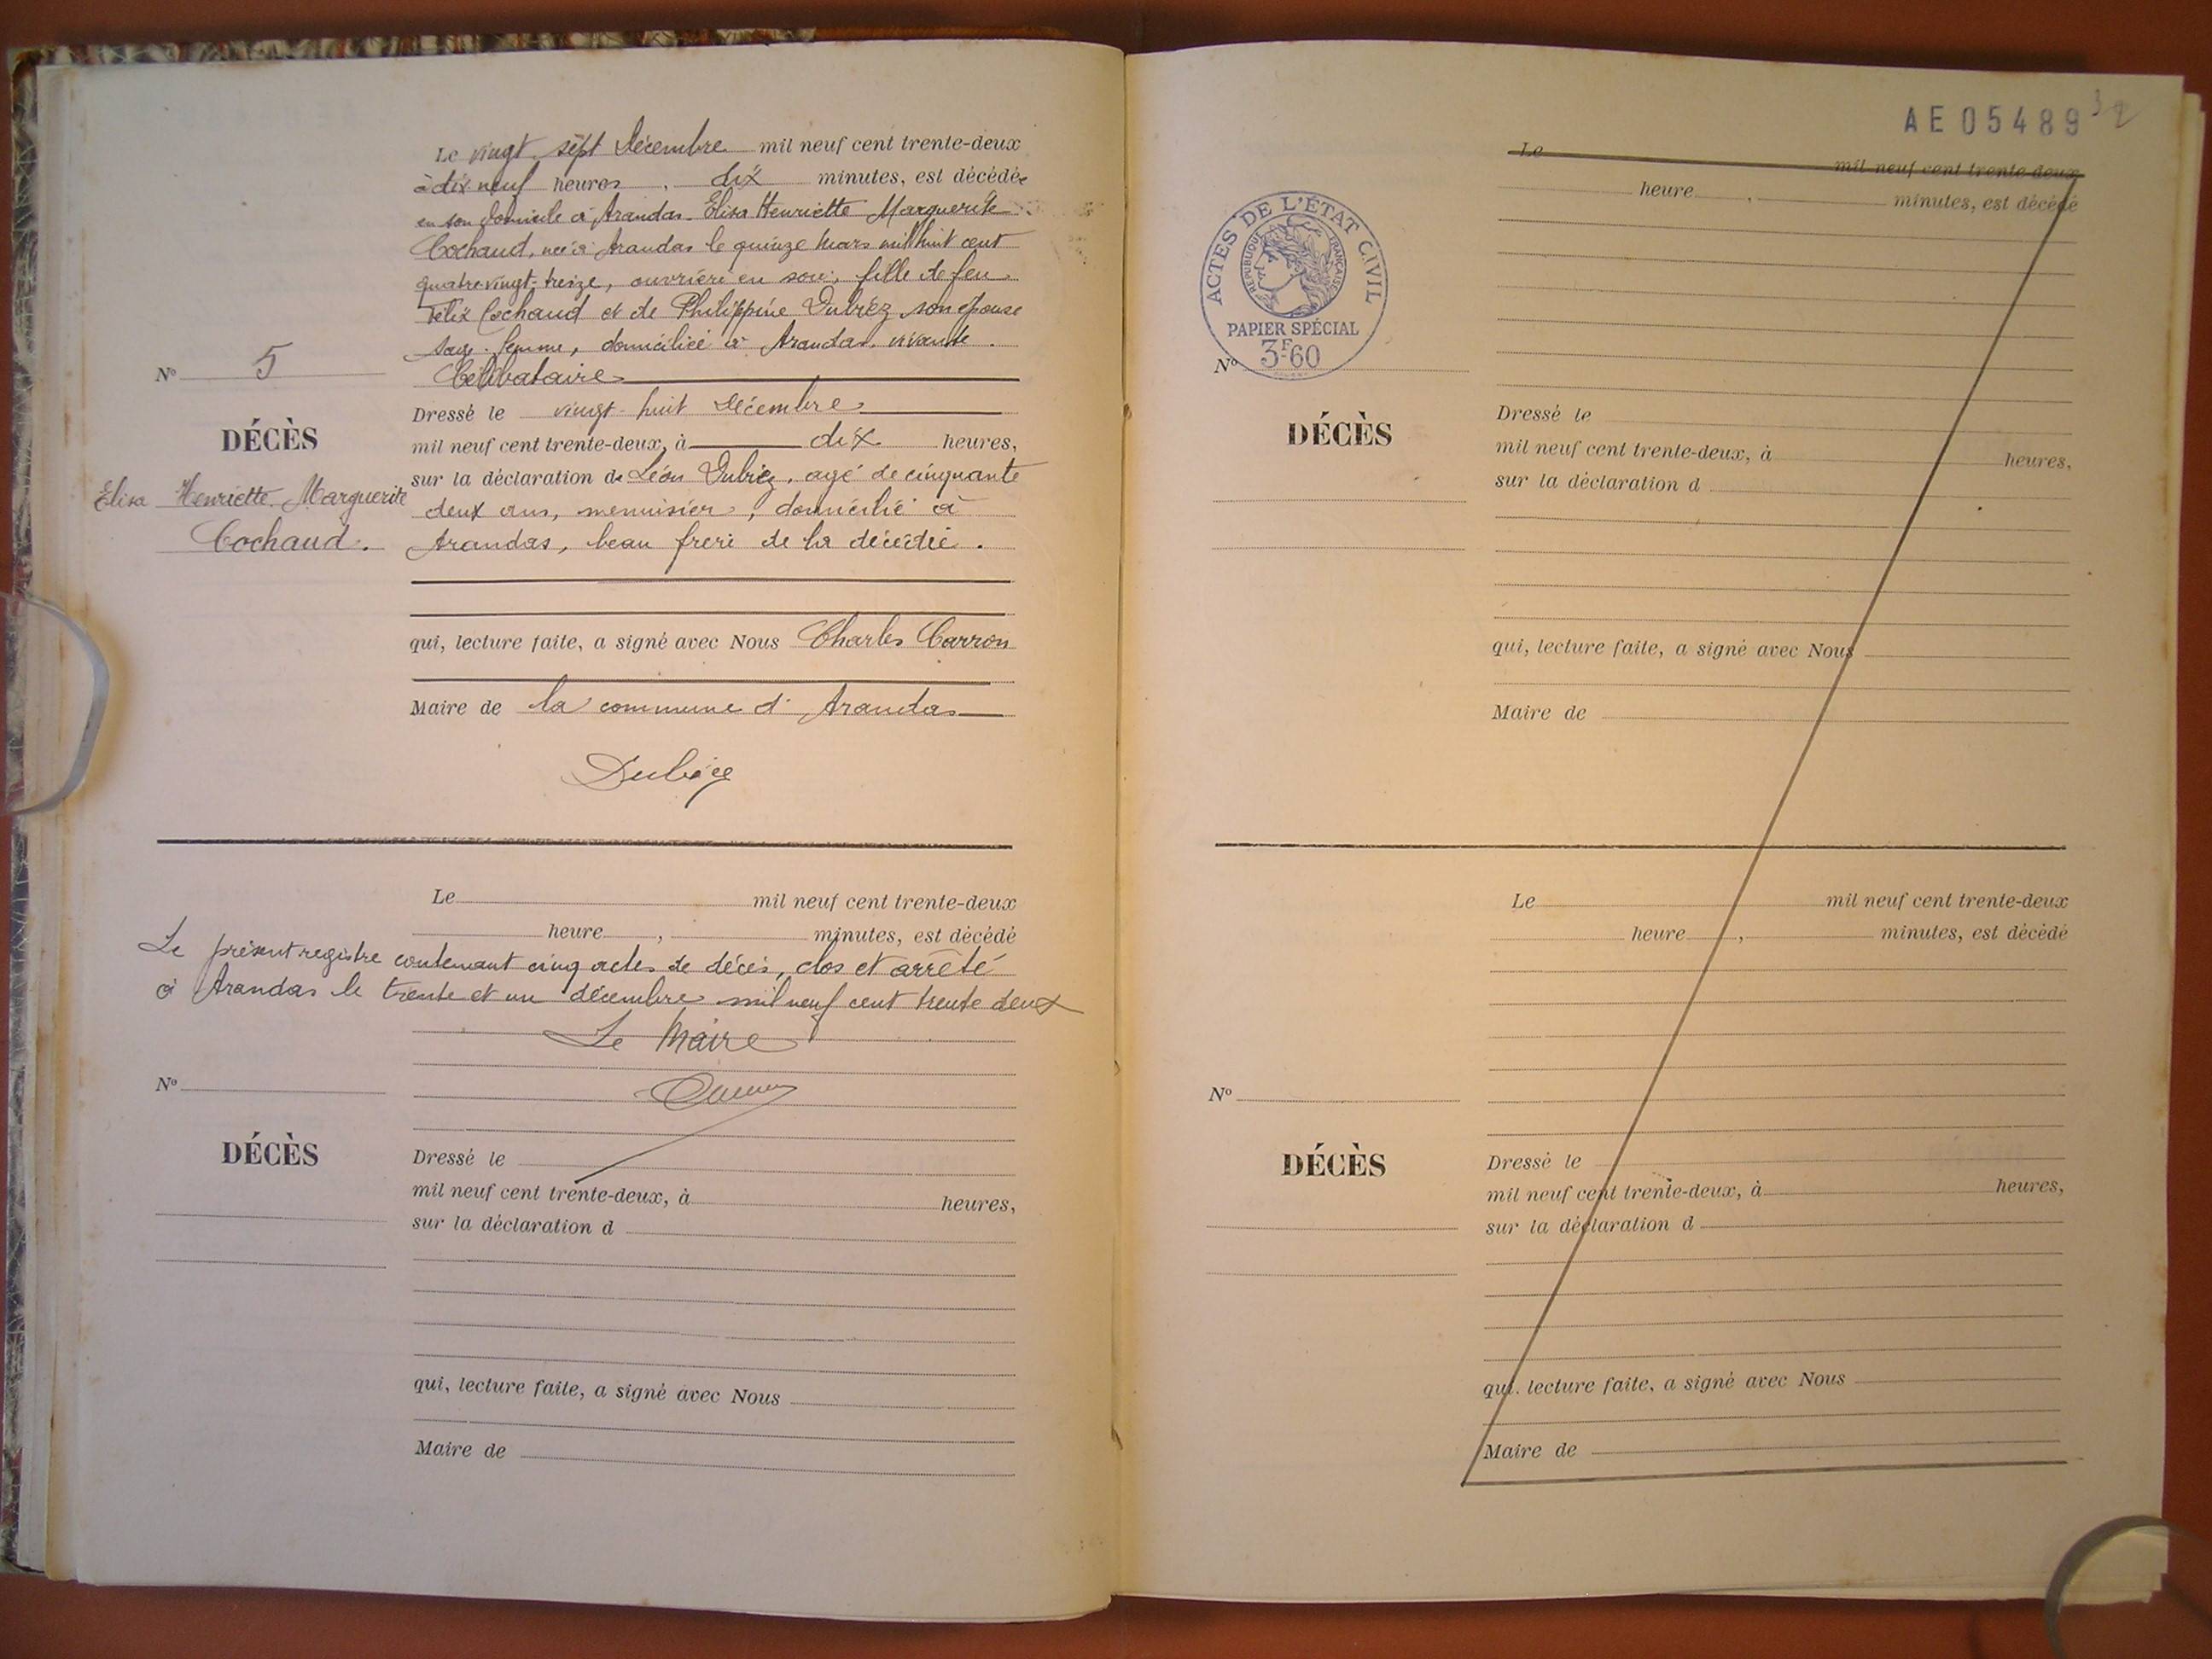 Le vingt sept Décembre mil neuf cent trente-deux
à dix neuf heures, dix minutes, est décédée
en son domicile à Arandas Elisa Henriette Marguerite
Cochaud, née à Arandas le quinze Mars mil huit cent
quatre-vingt-treize, ouvrière en soie, fille de feu
Félix Cochaud et de Philippine Dubiez son épouse
sage-femme, domiciliée à Arandas, vivante.
Célibataire
N° 5
DÉCÈS
Elisa Henriette Marguerite
Cochaud.
Dressé le vingt-huit Décembre
mil neuf cent trente-deux, à dix heures,
sur la déclaration de Léon Dubiez, agé de cinquante
deux ans, menuisier, domicilié à
Arandas, beau frère de la décédée.
qui, lecture faite, a signé avec Nous Charles Carron
Maire de la commune d'Arandas
Dubiez
Le mil neuf cent trente-deux
heure , minutes, est décédé
Le présent registre contenant cinq actes de décès, clos et arrêté
à Arandas le trente et un décembre mil neuf cent trente deux
Le Maire
N°
DÉCÈS
Dressé le
mil neuf cent trente-deux, à heures,
sur la déclaration d
qui, lecture faite, a signé avec Nous
Maire de
AE05489
32
Le mil neuf cent trente-deux
heure , minutes, est décédé
ACTES DE L'ÉTAT CIVIL
RÉPUBLIQUE FRANÇAISE
PAPIER SPÉCIAL
3F60
N°
DÉCÈS
Dressé le
mil neuf cent trente-deux, à heures,
sur la déclaration d
qui, lecture faite, a signé avec Nous
Maire de
Le mil neuf cent trente-deux
heure , minutes, est décédé
N°
DÉCÈS
Dressé le
mil neuf cent trente-deux, à heures,
sur la déclaration d
qui, lecture faite, a signé avec Nous
Maire de